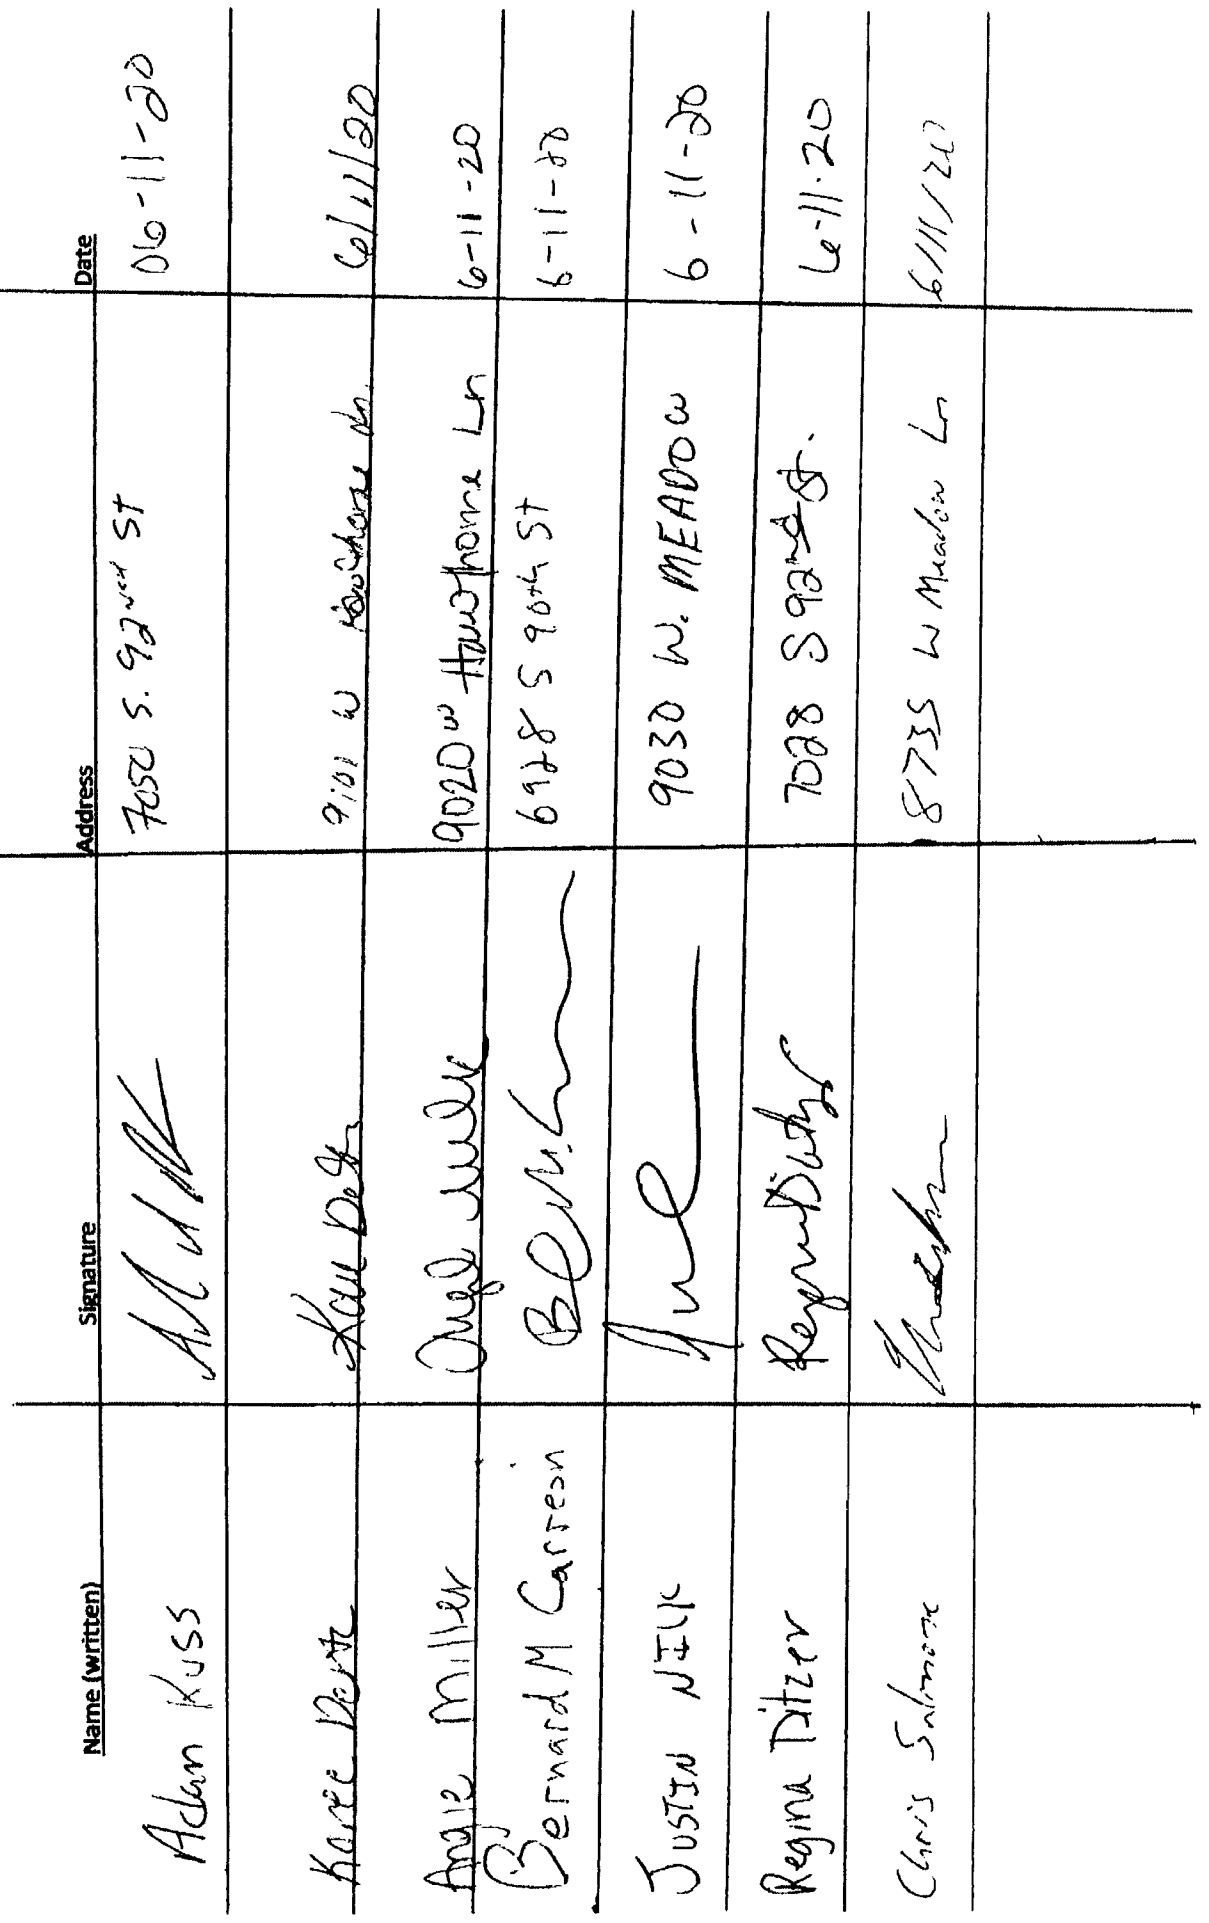 Name (written) Signature Address Date
Adam Kuss 7050 S. 92nd St 06-11-20
Karie 9101 W Hawthorne Ln. 6/11/20
Angie Miller 9020 W Hawthorne Ln 6-11-20
Bernard M Carreon 6928 S 90th St 6-11-20
JUSTIN NILK 9030 W. MEADOW 6-11-20
Regina Ditzer Regina Ditzer 7028 S 92nd St. 6-11-20
Chris Salmone 8735 W Meadow Ln 6/11/20